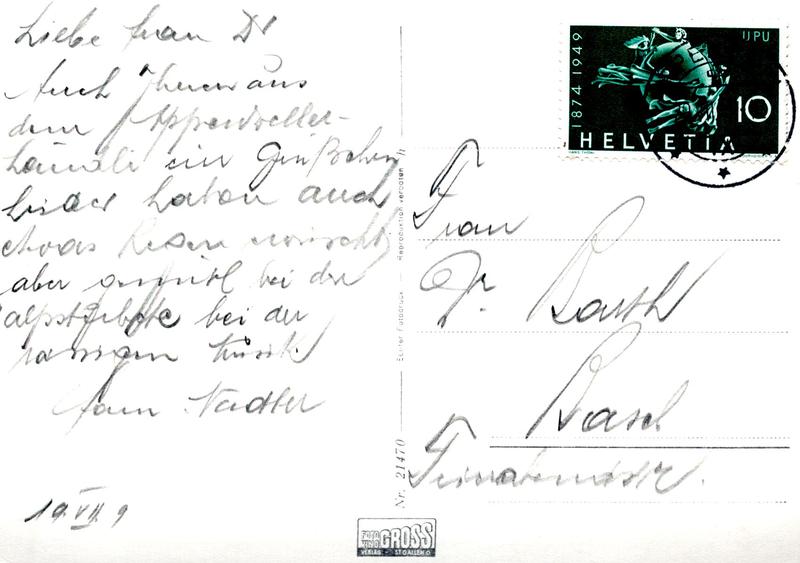 Liebe Frau Dr
Auch Ihnen aus
dem Appenzeller-
ländli ein
leider haben auch
etwas Regen erwischt
aber bei der
bei der
rassigen Musik
Fam. Nadler
19. VII. 9
1874 1949
UPU
10
HELVETIA
Frau
Dr. Barth
Basel
Echter Fotodruck — Reproduktion verboten
Nr. 21470
FOTO KINO GROSS
VERLAG - ST. GALLEN O